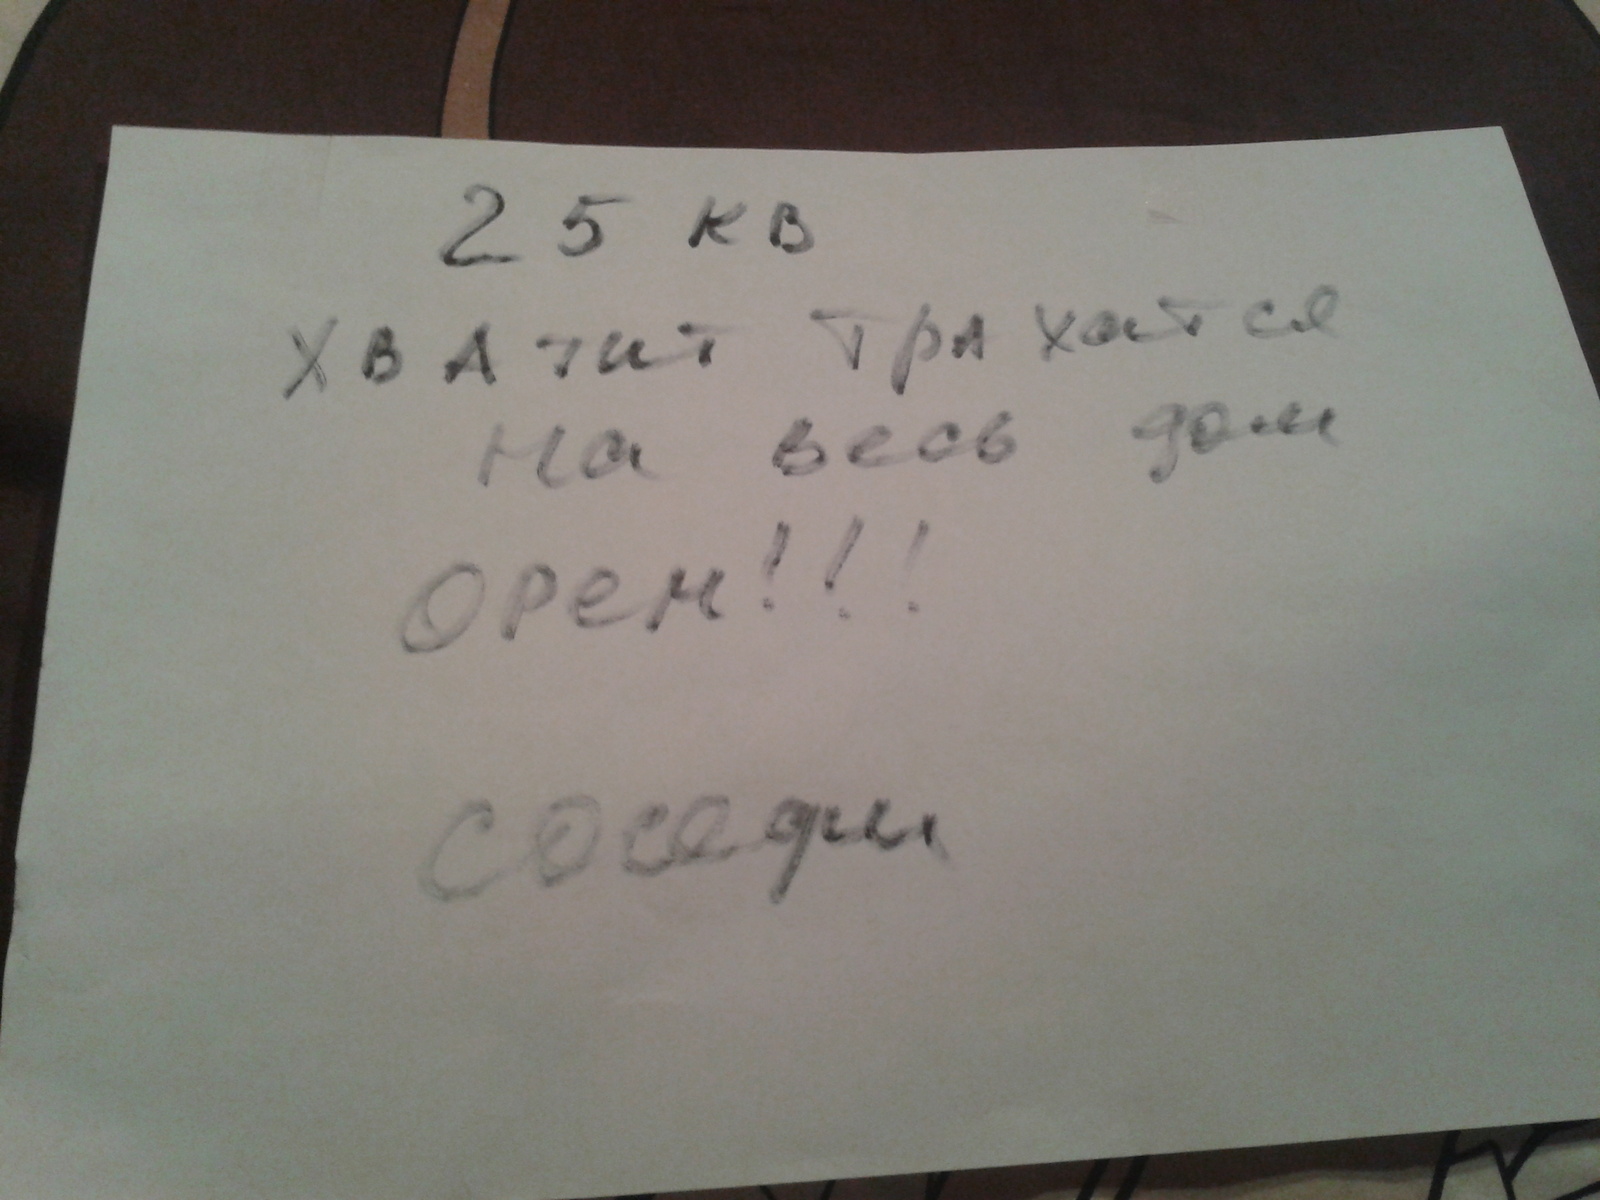 25 кв
хватит трахатся
на весь дом
орем!!!
соседи